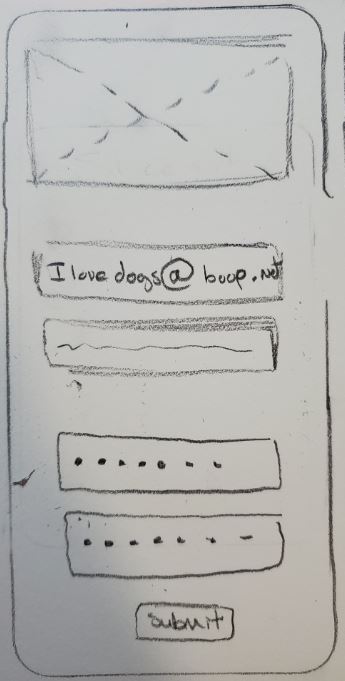 I love dogs@boop.net
submit